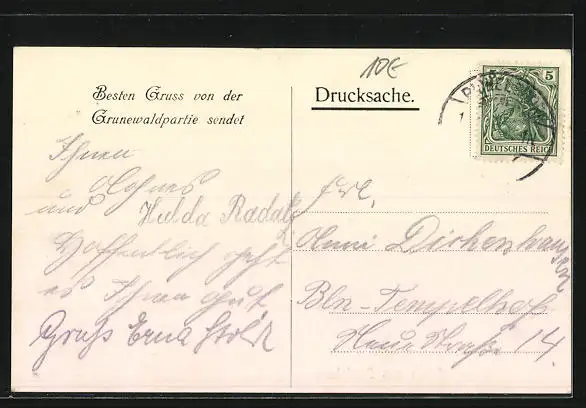 10€
Besten Gruss von der
Grunewaldpartie sendet
Drucksache.
5
DEUTSCHES REICH
Ihnen
und Hulda Radatz
Hoffentlich geht
es Ihnen gut.
Gruß Erna Stolz
Frl.
Anni Dirkenhausen
Bln-Tempelhof
Neue Straße 14